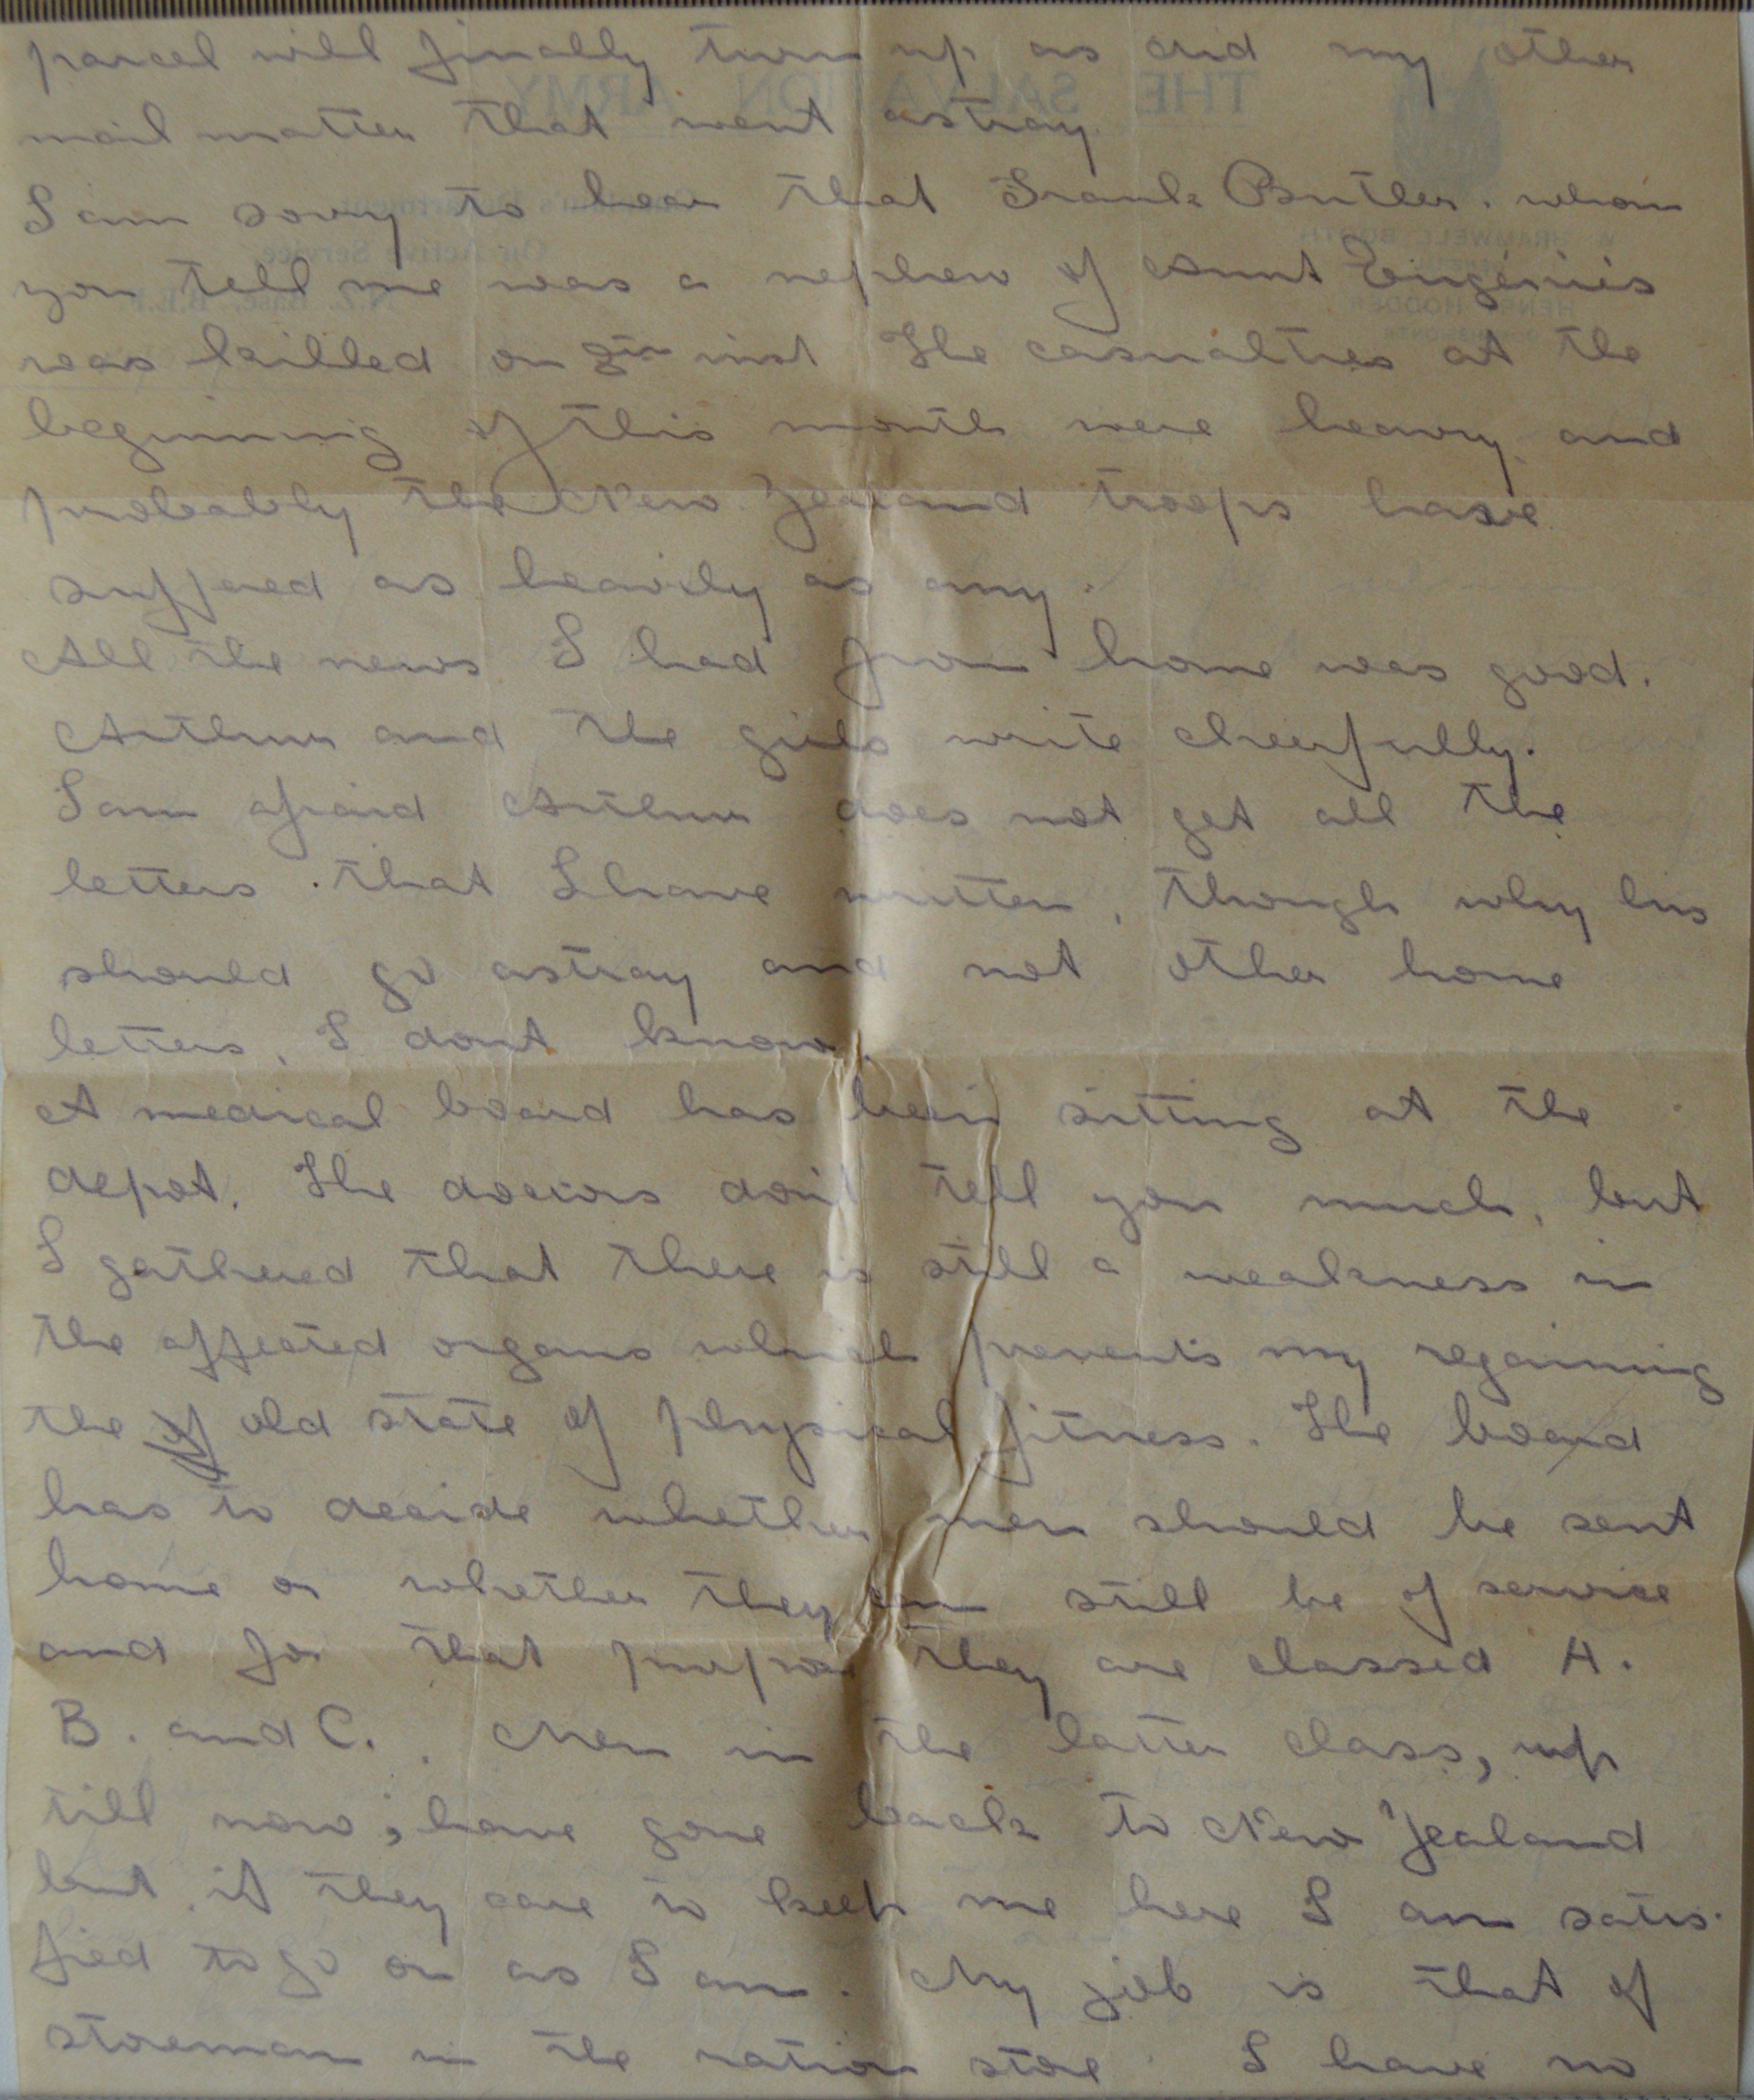 parcel will finally turn up as did my other
mail matter that went astray.
I am sorry to hear that Frank Butler. whom
you tell me was a nephew of Aunt Eugénies
was killed on inst The casualties at the
beginning of this month were heavy and
probably the New Zealand troops have
suffered as heavily as any.
All the news I had from home was good.
Arthur and the girls write cheerfully.
I am afraid Arthur does not get all the
letters that I have written, though why his
should go astray and not other home
letters, I dont know.
A medical board has been sitting at the
depot. The doctors dont tell you much, but
I gathered that there is still a weakness in
the affected organs which prevents my regaining
the of old state of physical fitness. The board
has to decide whether men should be sent
home or whether they can still be of service
and for that purpose they are classed A.
B. and C. . Men in the latter class, up
till now, have gone back to New Zealand
but if they care to keep me here I am satis-
fied to go on as I am. My job is that of
storeman in the ration store. I have no
THE SALVATION ARMY
W. BRAMWELL BOOTH
HENRY HODDER
On Active Service
N.Z. Base, B.E.F.